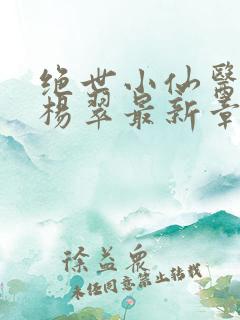 绝世小仙醫
楊翠最新章
徐益眾
未任同意禁止转载